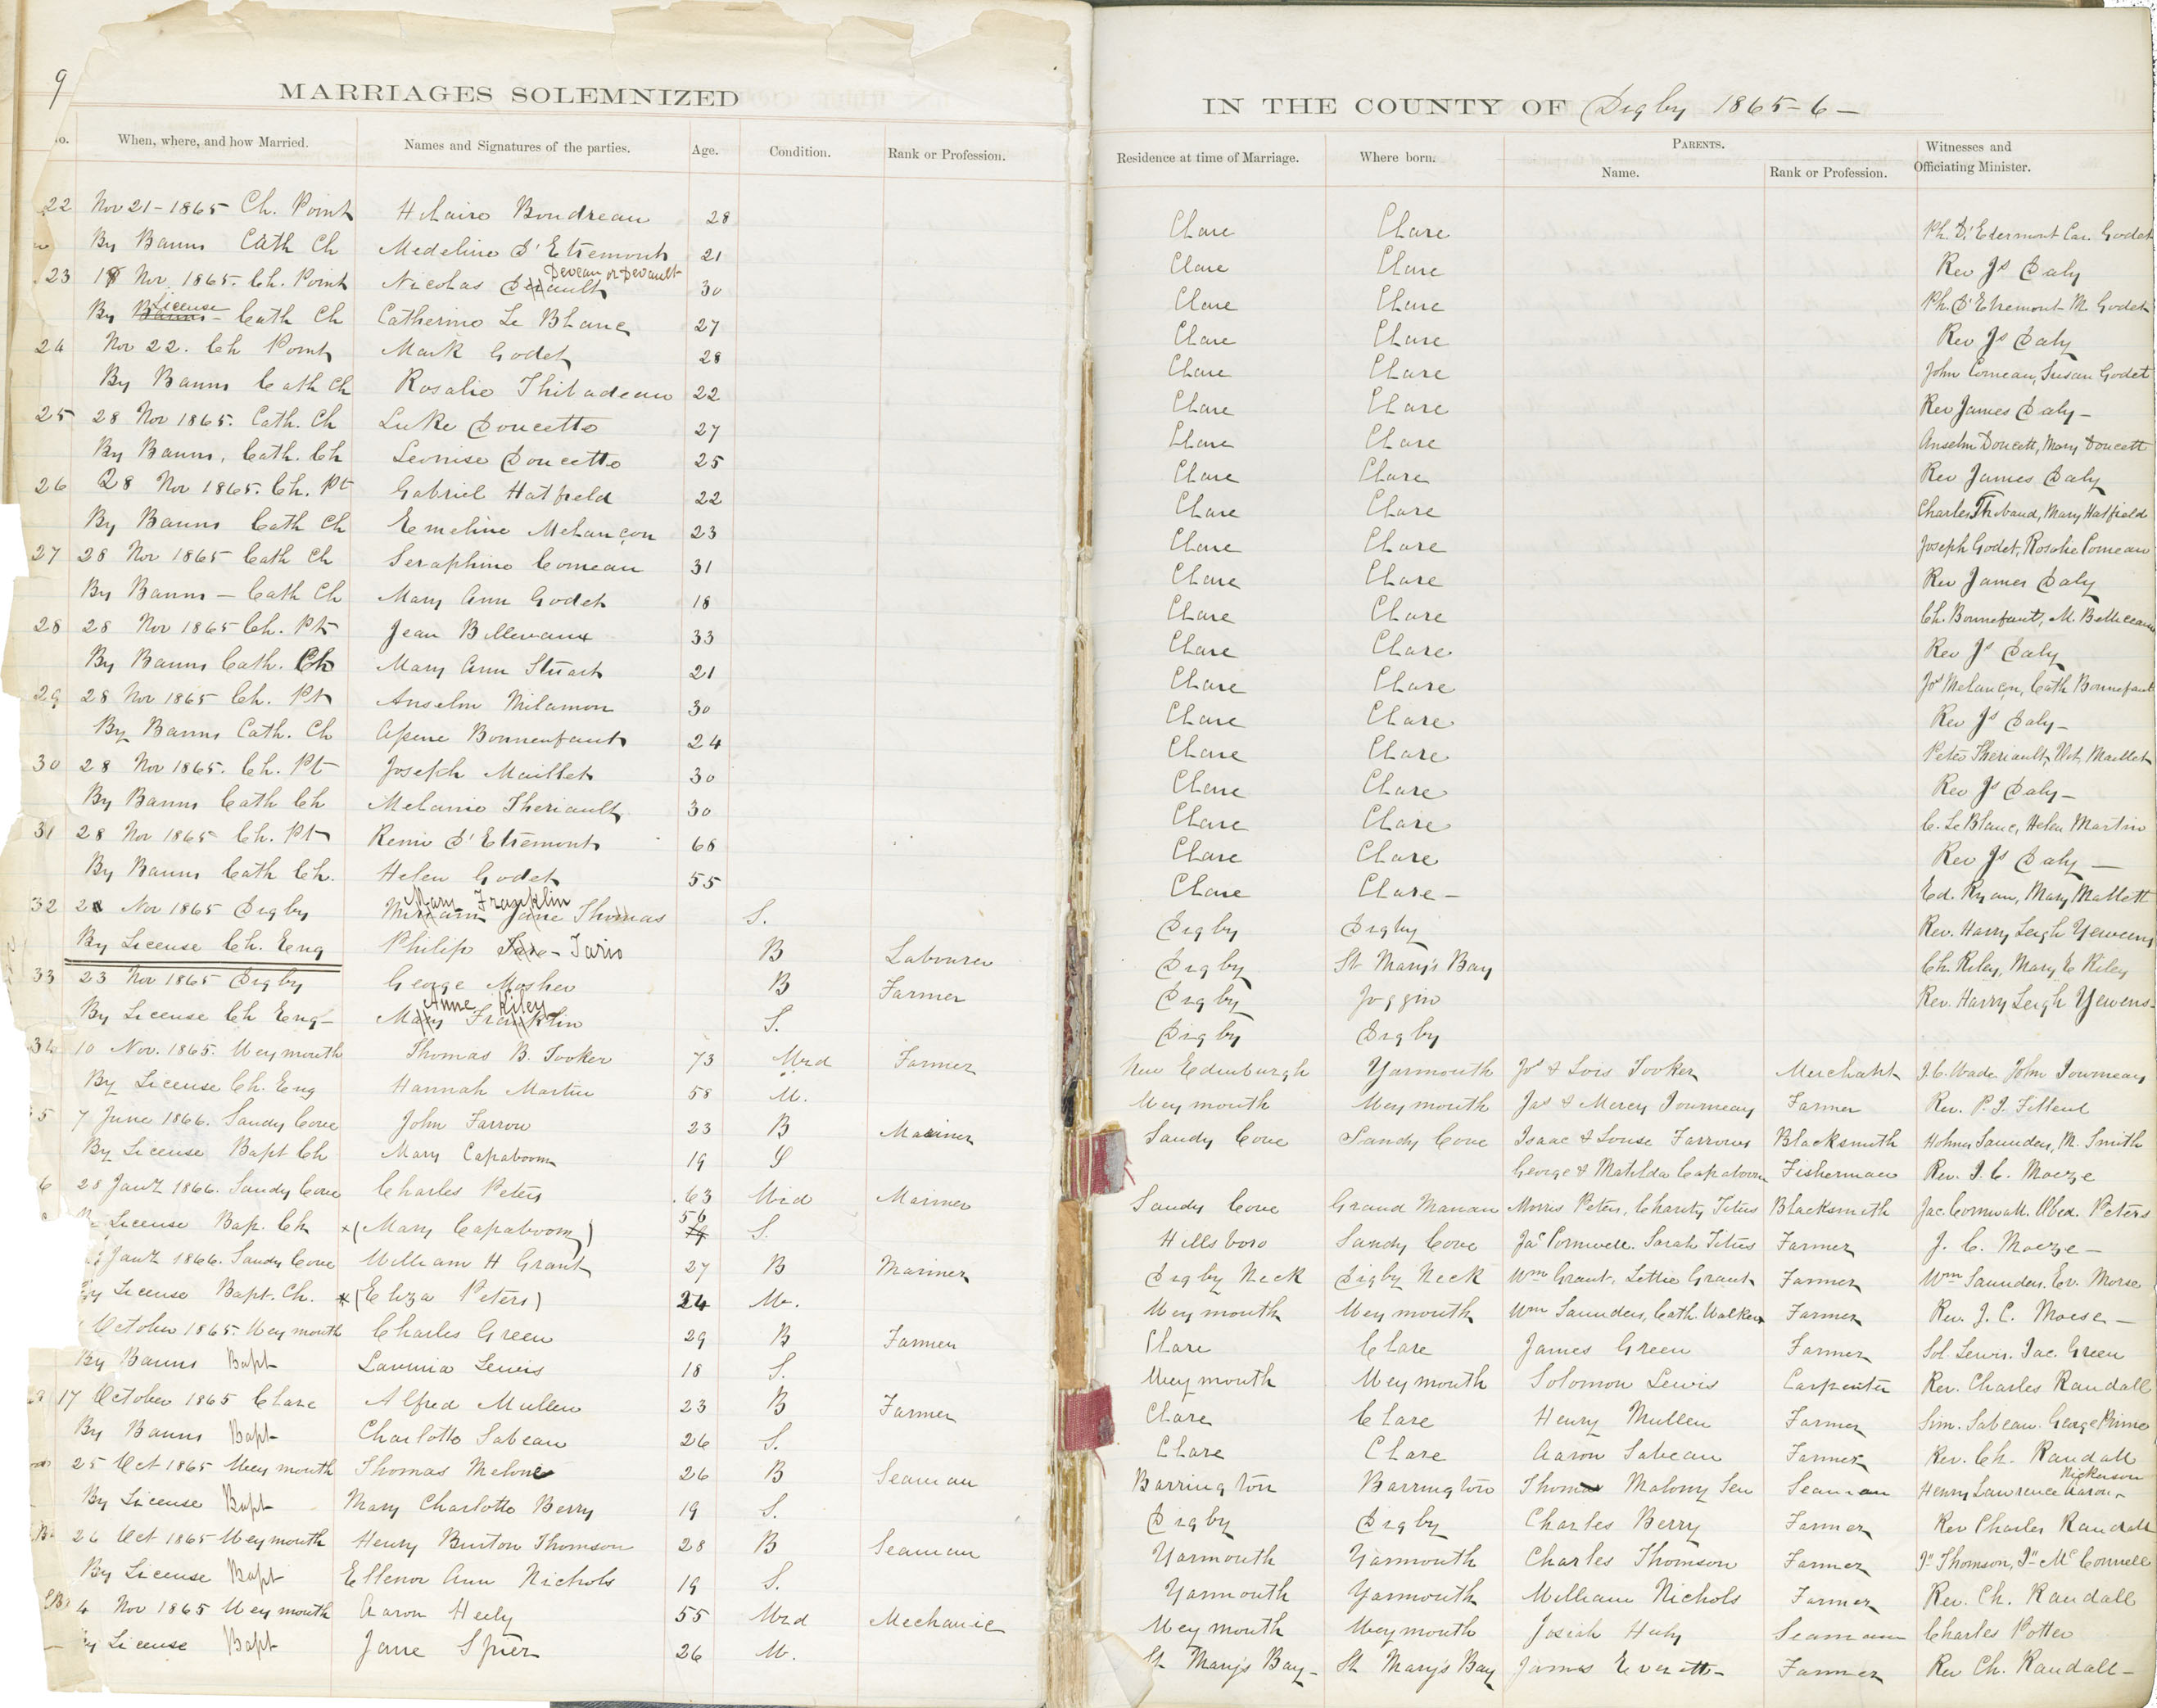 9
MARRIAGES SOLEMNIZED
IN THE COUNTY OF Digby 1865-6-
No. When, where, and how Married. Names and Signatures of the parties. Age. Condition. Rank or Profession. Residence at time of Marriage. Where born. PARENTS. Name. Rank or Profession. Witnesses and Officiating Minister.
22 Nov 21-1865 Ch. Point Hilaire Boudreau 28 Clare Clare Ph. D'Etermont Cas. Godet
By Banns Cath Ch Medeline D'Etremont 21 Clare Clare Rev Js Daly
Deveau or Devault
23 18 Nov 1865. Ch. Point Nicolas 30 Clare Clare Ph. D'Etremont M. Godet
License
By Banns - Cath Ch Catherine Le Blanc 27 Clare Clare Rev Js Daly
24 Nov 22. Ch Point Mark Godet 28 Clare Clare John Comeau, Susan Godet
By Banns Cath Ch Rosalie Thibadeau 22 Clare Clare Rev James Daly-
25 28 Nov 1865. Cath. Ch Luke Doucette 27 Clare Clare Anselm Doucett, Mary Doucett
By Banns, Cath. Ch Leonise Doucette 25 Clare Clare Rev James Daly
26 28 Nov 1865. Ch. Pt Gabriel Hatfield 22 Clare Clare Charles Thibaud, Mary Hatfield
By Banns Cath Ch Emeline Melançon 23 Clare Clare Joseph Godet, Rosalie Comeau
27 28 Nov 1865 Cath Ch Seraphine Comeau 31 Clare Clare Rev James Daly
By Banns - Cath Ch Mary Ann Godet 18 Clare Clare Ch. Bonnefant, M. Belliveau
28 28 Nov 1865 Ch. Pt Jean Bellevaux 33 Clare Clare Rev Js Daly
By Banns Cath. Ch Mary Ann Stuart 21 Clare Clare Jos Melançon, Cath Bonnefant
29 28 Nov 1865 Ch. Pt Anselm Milamon 30 Clare Clare Rev Js Daly-
By Banns Cath. Ch Bonnenfant 24 Clare Clare Peter Theriault, Maillet
30 28 Nov 1865. Ch. Pt Joseph Maillet 30 Clare Clare Rev Js Daly-
By Banns Cath Ch Melanie Theriault 30 Clare Clare C. Le Blanc, Helen Martin
31 28 Nov 1865 Ch. Pt Remi D'Etremont 68 Clare Clare Rev Js Daly -
By Banns Cath Ch. Helen Godet 55 Clare Clare - Ed. Ryan, Mary Mallett
Mary Franklin
32 28 Nov 1865 Digby Miriam Jane Thomas S. Digby Digby Rev. Harry Leigh Yewens
By License Ch. Eng Philip - Tario B Labourer Digby St Mary's Bay Ch. Riley, Mary E Riley
33 23 Nov 1865 Digby George Mosher B Farmer Digby Joggin Rev. Harry Leigh Yewens-
Anne Riley
By License Ch Eng- Mary Franklin S. Digby Digby
34 10 Nov. 1865. Weymouth Thomas B. Tooker 73 Wid Farmer New Edinburgh Yarmouth Js & Lois Tooker Merchant J. C. Wade John Journeay
By License Ch. Eng Hannah Martin 58 W. Weymouth Weymouth Jas & Mercy Journeay Farmer Rev. P. J. Filleul
5 7 June 1866. Sandy Cove John Farrow 23 B Mariner Sandy Cove Sandy Cove Isaac & Louse Farrow Blacksmith Saunders, M. Smith
By License Bapt Ch Mary Capaboom 19 S George & Matilda Capaboom Fisherman Rev. J. C. Morse
6 28 Jany 1866. Sandy Cove Charles Peters 63 Wid Mariner Sandy Cove Grand Manan Morris Peters, Charity Titus Blacksmith Jac. Cornwall. Obed. Peters
License Bap. Ch x (Mary Capaboom) 56 S. Hillsboro Sandy Cove Jas Cornwell. Sarah Titus Farmer J. C. Morse -
Jany 1866. Sandy Cove William H Grant 27 B Mariner Digby Neck Digby Neck Wm Grant, Lettie Grant Farmer Wm Saunders, Ev. Morse
By License Bapt. Ch. x (Eliza Peters) 24 W. Weymouth Weymouth Wm Saunders, Cath. Walker Farmer Rev. J. C. Morse -
October 1865. Weymouth Charles Green 29 B Farmer Clare Clare James Green Farmer Sol. Lewis. Jac. Green
By Banns Bapt Lavinia Lewis 18 S. Weymouth Weymouth Solomon Lewis Carpenter Rev. Charles Randall
17 October 1865 Clare Alfred Mullen 23 B Farmer Clare Clare Henry Mullen Farmer Sim. Sabean. George Prime
By Banns Bapt Charlotte Sabean 26 S. Clare Clare Aaron Sabean Farmer Rev. Ch. Randall
Nickerson
25 Oct 1865 Weymouth Thomas Melone 26 B Seaman Barrington Barrington Thomas Malony Sen Seaman Henry Lawrence Aaron
By License Bapt Mary Charlotte Berry 19 S. Digby Digby Charles Berry Farmer Rev Charles Randall
26 Oct 1865 Weymouth Henry Burton Thomson 28 B Seaman Yarmouth Yarmouth Charles Thomson Farmer Jn Thomson, Jn McConnell
By License Bapt Ellenor Ann Nichols 19 S. Yarmouth Yarmouth William Nichols Farmer Rev. Ch. Randall
4 Nov 1865 Weymouth Aaron Heely 55 Wid Mechanic Weymouth Weymouth Josiah Huly Seaman Charles Potter
By License Bapt Jane Spier 26 W. St Mary's Bay- St Mary's Bay James Everett- Farmer Rev Ch. Randall-